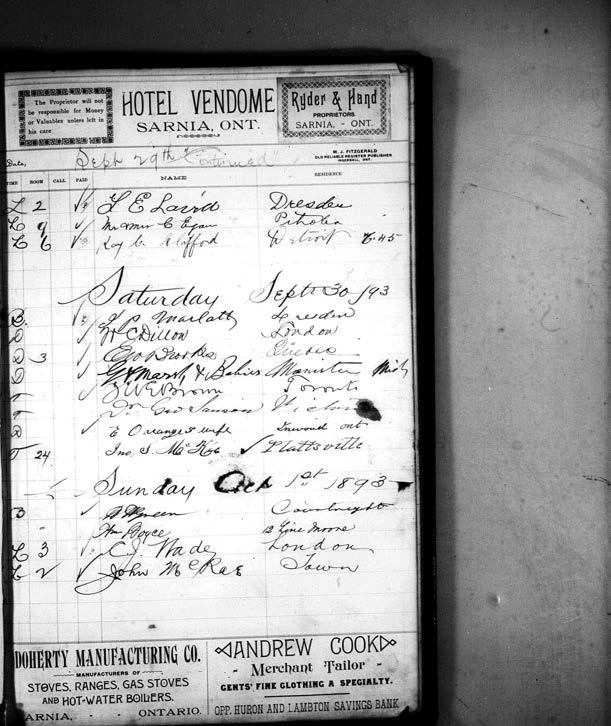 The Proprietor will not
be responsible for Money
or Valuables unless left in
his care.
HOTEL VENDOME
SARNIA, ONT.
Ryder & Hand
PROPRIETORS
SARNIA, - ONT.
M. J. FITZGERALD
OLD RELIABLE REGISTER PUBLISHER
INGERSOLL, ONT.
Date, Sept 29th Continued
TIME ROOM CALL PAID NAME RESIDENCE
L 2 L E Laird Dresden
L 9 Mr & Mrs C Egan Petrolea
L 6 Detroit 6.45
Saturday Sept 30/93
B. Marlatt Dresden
D W C Dillon London
D 3 E W Brooks Quebec
G W Marsh & Babies Manistee Mich
Brown Toronto
Dr Geo Sanson Victoria
D E Orange & wife Inwood ont
T 24 Jno. S. McKee Plattsville
Sunday Oct 1st 1893
B Green Courtright
Wm Boyce 12 Line Moore
L 3 C. J. Wade London
L 2 John McRae Town
DOHERTY MANUFACTURING CO.
MANUFACTURERS OF
STOVES, RANGES, GAS STOVES
AND HOT-WATER BOILERS.
SARNIA, - ONTARIO.
ANDREW COOK
- Merchant Tailor -
GENTS' FINE CLOTHING A SPECIALTY.
OPP. HURON AND LAMBTON SAVINGS BANK